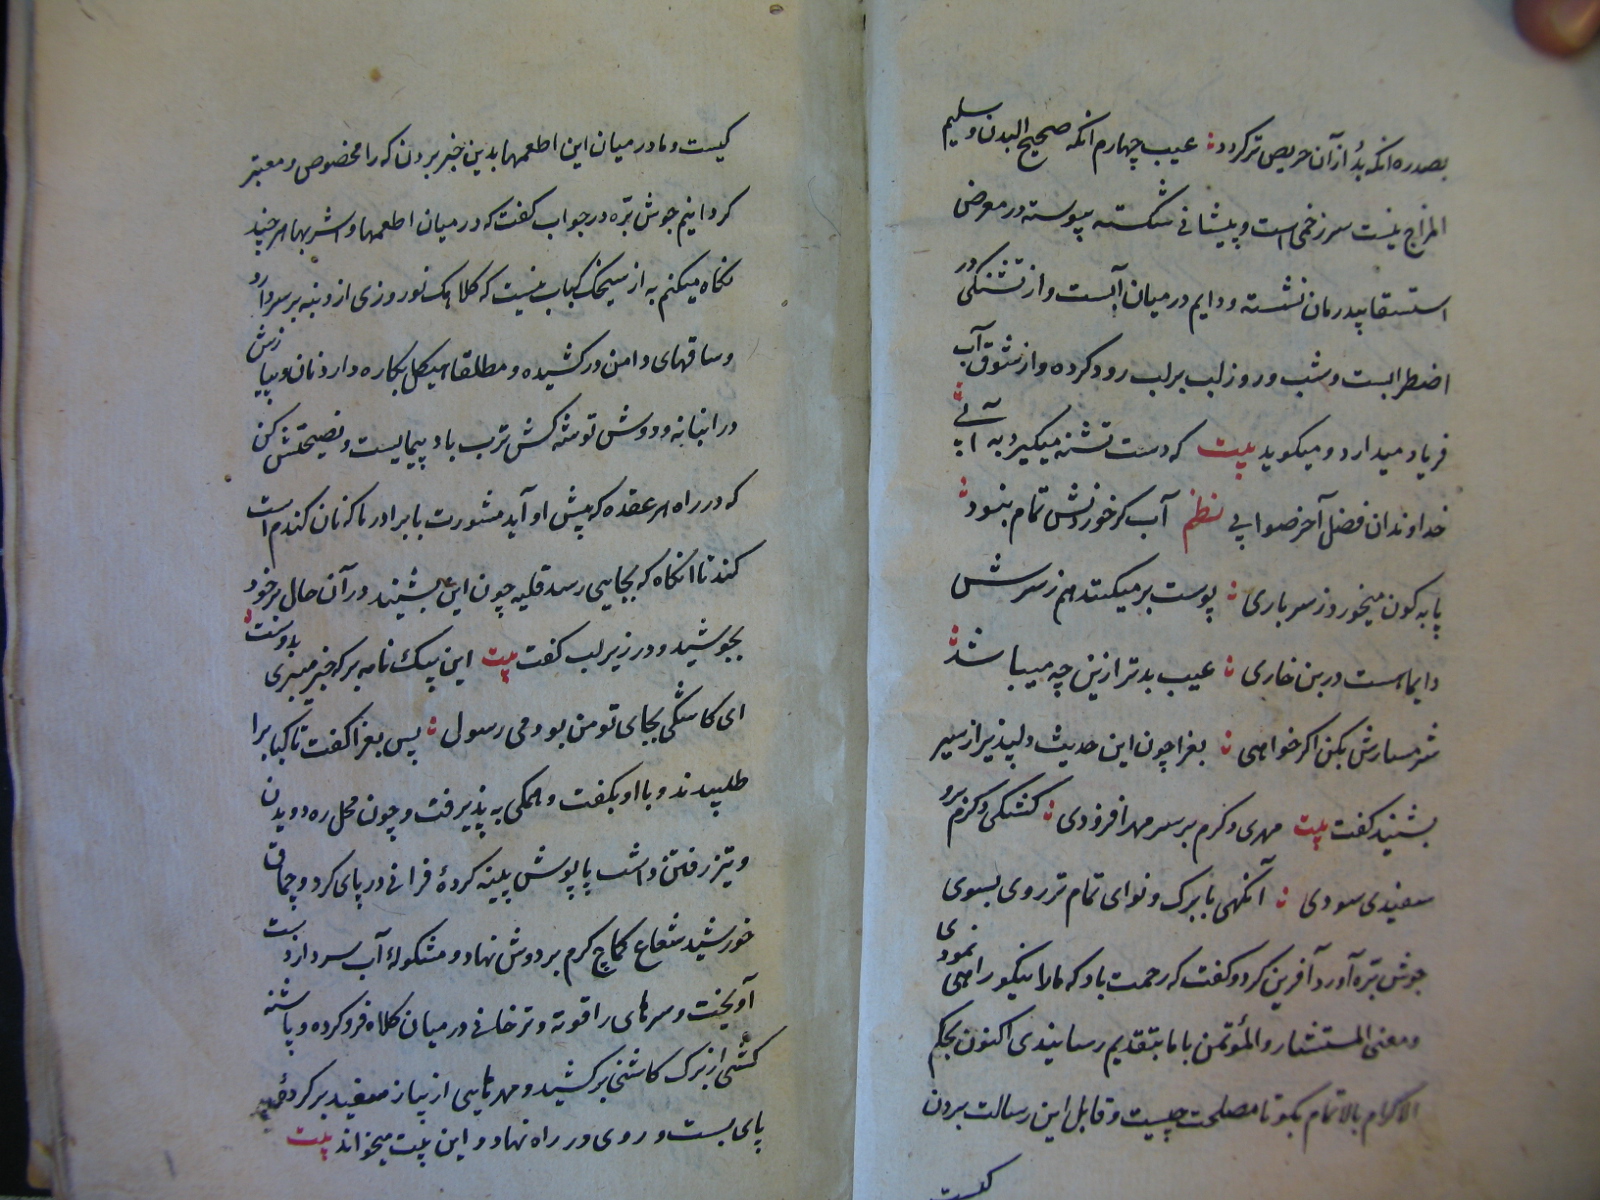 بصدره انکه بدُ ازآن حریص تر کردد عیب چهارم انکه صحیح البدن و سلیم
المزاج نیست سرزخمی است و پیشانی شکسته پیوسته در معرض
استسقا پیدرمان نشسته و دایم در میان آبست و از تشنکی در
اضطرابست و شب و روز لب برلب رود کرده و از شوق آب
فریاد میدارد و میکوید بیت که دست تشنه میکیرد به آبی
خداوندان فضل آخر صوابی نظم آب کر خوردنش تمام بنود
پابه کون میخورد ز سرباری پوست بر میکنند هم ز سرش
دایماهست در بن خاری عیب بدتر ازین چه میباشد
شرمسارش بکن اکر خواهی بغرا چون این حدیث دلپذیر از سیر
بشنید کفت بیت مهری و کرم بر سر مهر افزودی کشتکی و کرم برو
سفیدی سودی آنکهی با برک و نوای تمام تر روی بسوی
جوش بره آورد آفرین کرد و کفت که رحمت باد که ما را نیکو راهی نمودی
و معنی المستشار والمؤتمن با ما بتقدیم رسانیدی اکنون بحکم
الاکرام بالاتمام بکو تا مصلحت چیست و قابل این رسالت بردن
کیست
کیست و ما در میان این اطعمها بدین خبر بردن که را مخصوص و معتبر
کردانیم جوش بره در جواب کفت که در میان اطعمها و اشربها هر چند
نکاه میکنم به از سیخک کباب نیست که کلاهک نوروزی از دنبه بر سر دارد
و ساقهای دامن در کشیده و مطلقا هیکل بکاره دارد نان و پیازش
در انبانه و دوش توشه کش ترب باد پیمایست و نصیحتش کن
که در راه هر عقده که پیش او آید مشورت با برادر ما که نان کندم است
کند تا انکاه که بجایی رسد قلیه چون این بشنید در آن حال بر خود
بجوشید و در زیر لب کفت بیت این پیک نامه بر که خبر میبری بدوست
ای کاشکی بجای تو من بودمی رسول پس بغرا کفت تا کباب را
طلبیدند و با او بکفت و همکی به پذیرفت و چون محل ره دویدن
و تیز رفتن داشت پاپوش پلپنه کردهٔ فرانی در پای کرد و چماق
خورشید شعاع کماچ کرم بر دوش نهاد و مشکولهٔ آب سرد از دست
آویخت و سرهای را قوته و ترخانی در میان کلاه فرو کرده و پاشنه
کشی از برک کاشنی بر کشید و مهر هایی از پیاز سفید بر کردهٔ
پای بست و روی در راه نهاد و این بیت میخواند بیت